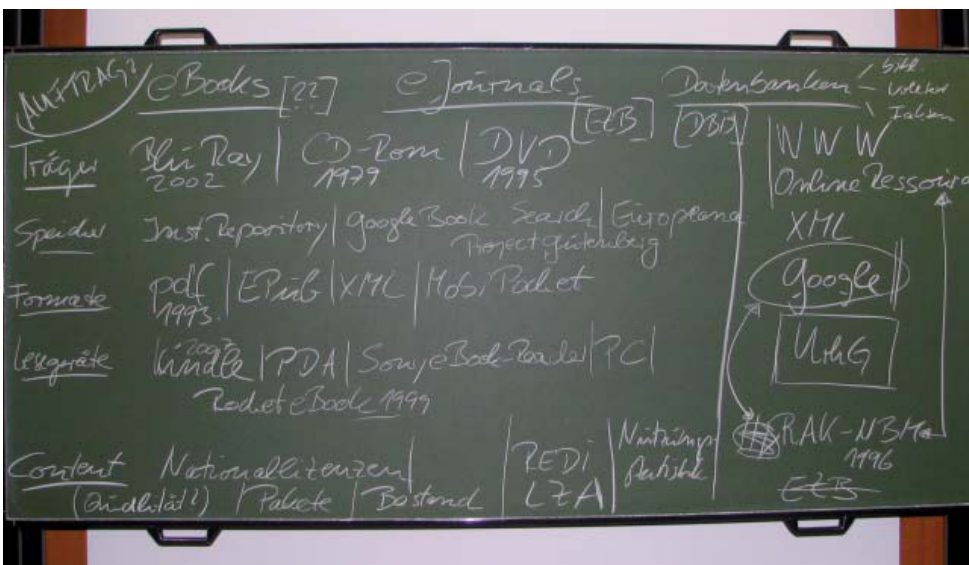 AUFTRAG?
eBooks [??] eJournals [EZB] Datenbanken [DBIS]
Träger Blu Ray 2002 | CD-Rom 1979 | DVD 1995
Speicher Inst. Repository | Google Book Search | Europeana
Project Gutenberg
Formate pdf 1993 | EPub | XML | MobiPocket
Lesegeräte Kindle 2007 | PDA | Sony eBook-Reader | PC |
Rocket eBook 1999
Content Nationallizenzen |
(Qualität?) | Pakete | Bestand
REDI
LZA
Nutzungs
statistik
WWW
Online Ressource
XML
Google
UrhG
RAK-NBM
1996
EZB